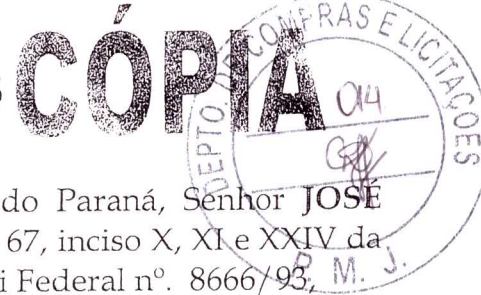 CÓPIA
DEPTO. DE COMPRAS E LICITAÇÕES
014
P. M. J.
do Paraná, Senhor JOSÉ
67, inciso X, XI e XXIV da
i Federal nº. 8666/93,